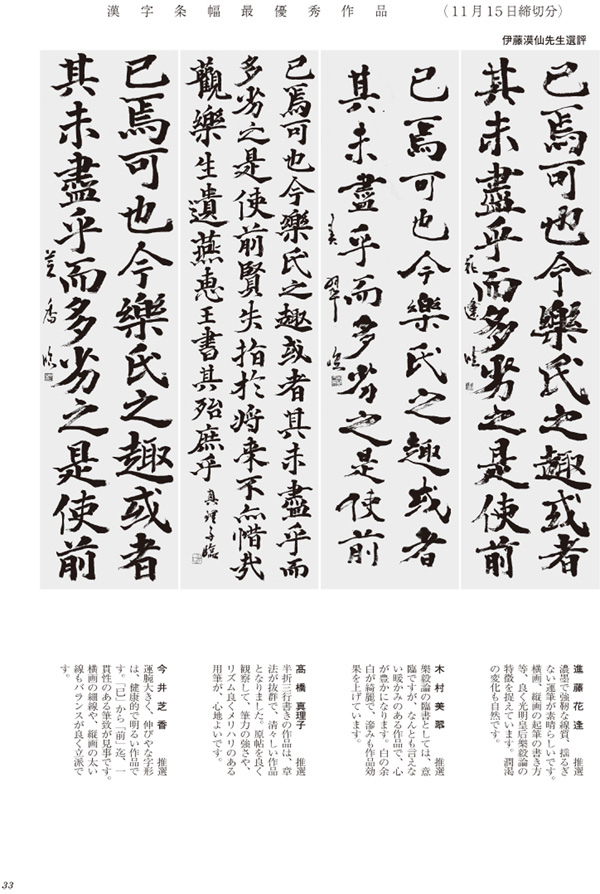 漢字条幅最優秀作品　（11月15日締切分）
伊藤漠仙先生選評
已焉可也今樂氏之趣或者
其未盡乎而多劣之是使前
花逢臨
已焉可也今樂氏之趣或者
其未盡乎而多劣之是使前
美翠臨
已焉可也今樂氏之趣或者其未盡乎而
多劣之是使前賢失指於将来不亦惜哉
觀樂生遺燕惠王書其殆庶乎　真理子臨
已焉可也今樂氏之趣或者
其未盡乎而多劣之是使前
芝香臨
進藤花逢　推選
濃墨で強靭な線質、揺るぎ
ない運筆が素晴らしいです。
横画、縦画の起筆の書き方
等、良く光明皇后楽毅論の
特徴を捉えています。潤渇
の変化も自然です。
木村美翠　推選
楽毅論の臨書としては、意
臨ですが、なんとも言えな
い暖かみのある作品で、心
が豊かになります。白の余
白が綺麗で、滲みも作品効
果を上げています。
髙橋真理子　推選
半折三行書きの作品は、章
法が抜群で、清々しい作品
となりました。原帖を良く
観察して、筆力の強さや、
リズム良くメリハリのある
用筆が、心地よいです。
今井芝香　推選
運腕大きく、伸びやな字形
は、健康的で明るい作品で
す。「已」から「前」迄、一
貫性のある筆致が見事です。
横画の細線や、縦画の太い
線もバランスが良く立派で
す。
33